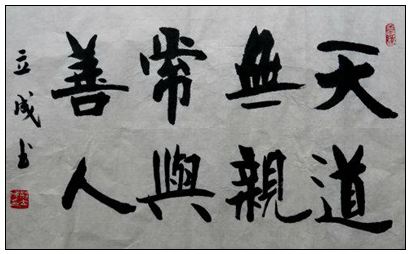 天道
無親
常與
善人
立成书